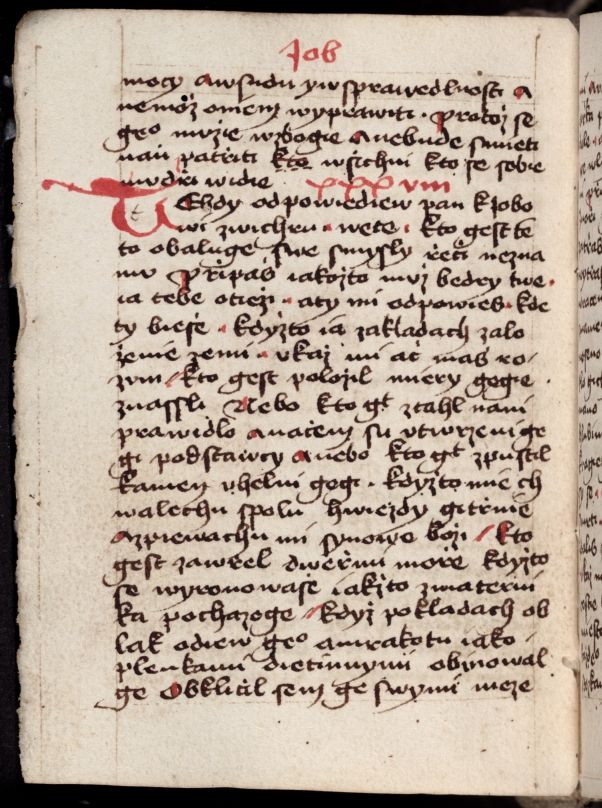 Job
moci awsudu ywsprawedlnosti A
nemóż oniem wyprawiti · Protoż se
geͦ muzie wzbogie Anebude smieti
nan patriti kto wsichni kto se sobie
mudri widie xxxviii
Tehdy odpowiediew pan k Jobo
wi zwichru · wece · kto gest te
to obaluge swe smysly řeči nezna
mu Připaš iakożto muż bedry twe ·
ia tebe otieži · aty mi odpowies · kde
ty bieše · kdyżto ia zakladach zalo
żenie zemi · vkaż mi ač mas ro/
zum / kto gest polożil miery gegie ·
znassli Nebo kto gt ztahl nani
prawidlo anačem su vtwrzeni ge
gi podstawcy anebo kto gt zpustil
kamen vhelni gegi · kdyżto mie ch
walechu spolu hwiezdy gitřnie
azpiewachu mi synowe bożi / kto
gest zawřel dweřmi moře kdyżto
se wyronowaše iakżto zmaterni
ka pochazoge / kdyż pokladach ob
lak odiew geͦ amrakotu iako
plenkami dietinnymi obinowal
ge Obkličil sem ge swymi meze